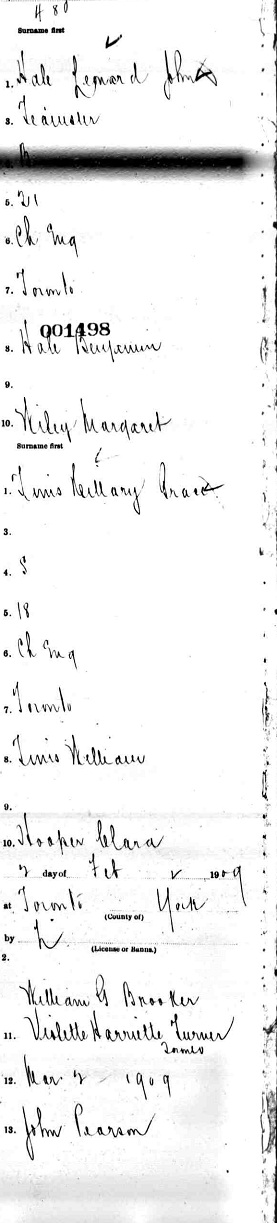 480
Surname first
1. Hale Leonard John
3. Teamster
4. B
5. 21
6. Ch Eng
7. Toronto
001498
8. Hale Benjamin
9.
10. Wiley Margaret
Surname first
1. Grace
3.
4. S
5. 18
6. Ch Eng
7. Toronto
8. William
9.
10. Hooper Clara
2 day of Feb 1909
at Toronto York
(County of)
by L
(License or Banns.)
2.
William G Brooker
11. Violette Harriette Turner
12. Mar 2 1909
13. John Pearson